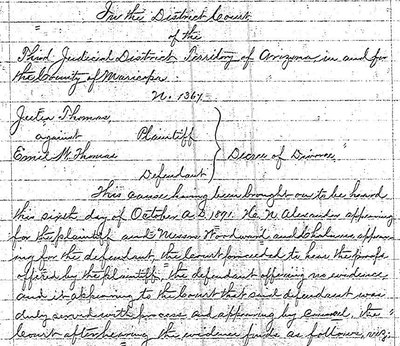 In the District Court
of the
Third Judicial District Territory of Arizona, in and for
the County of Maricopa.
N. 1367
Thomas,
against Plaintiff
Emil W. Thomas
Defendant
Decree of Divorce,
This cause having been brought on to be heard
this sixth day of October A.D. 1891. H. N. Alexander appearing
for the plaintiff and Messrs Woodward and appear
ing for the defendant, the Court proceeded to hear the proofs
offered by the plaintiff, the defendant offering no evidence
and it appearing to the Court that said defendant was
duly served with process and appearing by counsel, the
Court after hearing the evidence finds as follows, viz;